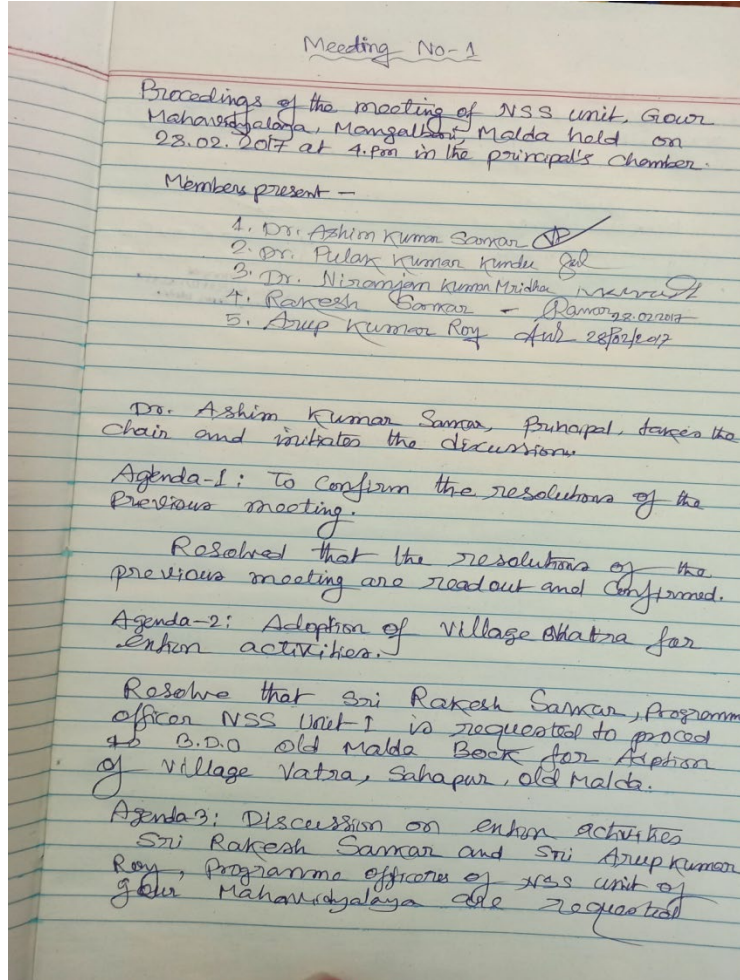 Meeding No-1
Procedings of the meeting of NSS unit, Gour
Mahavidyalaya, Mangalbari, Malda held on
28.02.2017 at 4.pm in the principal's chamber.
Members present —
1. Dr. Ashim Kumar Sarkar
2. Dr. Pulak Kumar Kundu
3. Dr. Niranjan Kumar Mridha
4. Rakesh Sarkar - 28.02.2017
5. Arup Kumar Roy 28/02/2017
Dr. Ashim Kumar Sarkar, Principal, takes the
chair and initiates the discussion.
Agenda-1: To Confirm the resolutions of the
Previous meeting.
Resolved that the resolutions of the
previous meeting are readout and Confirmed.
Agenda-2: Adoption of village Bhatra for
activities.
Resolve that Sri Rakesh Sarkar, Programm
officer NSS Unit-I is requested to proced
to B.D.O old Malda Bock for Adption
of village Vatra, Sahapur, old Malda.
Agenda3: Discussion on activities
Sri Rakesh Sarkar and Sri Arup Kumar
Roy, Programme officores of NSS unit of
gour Mahavidyalaya are requested